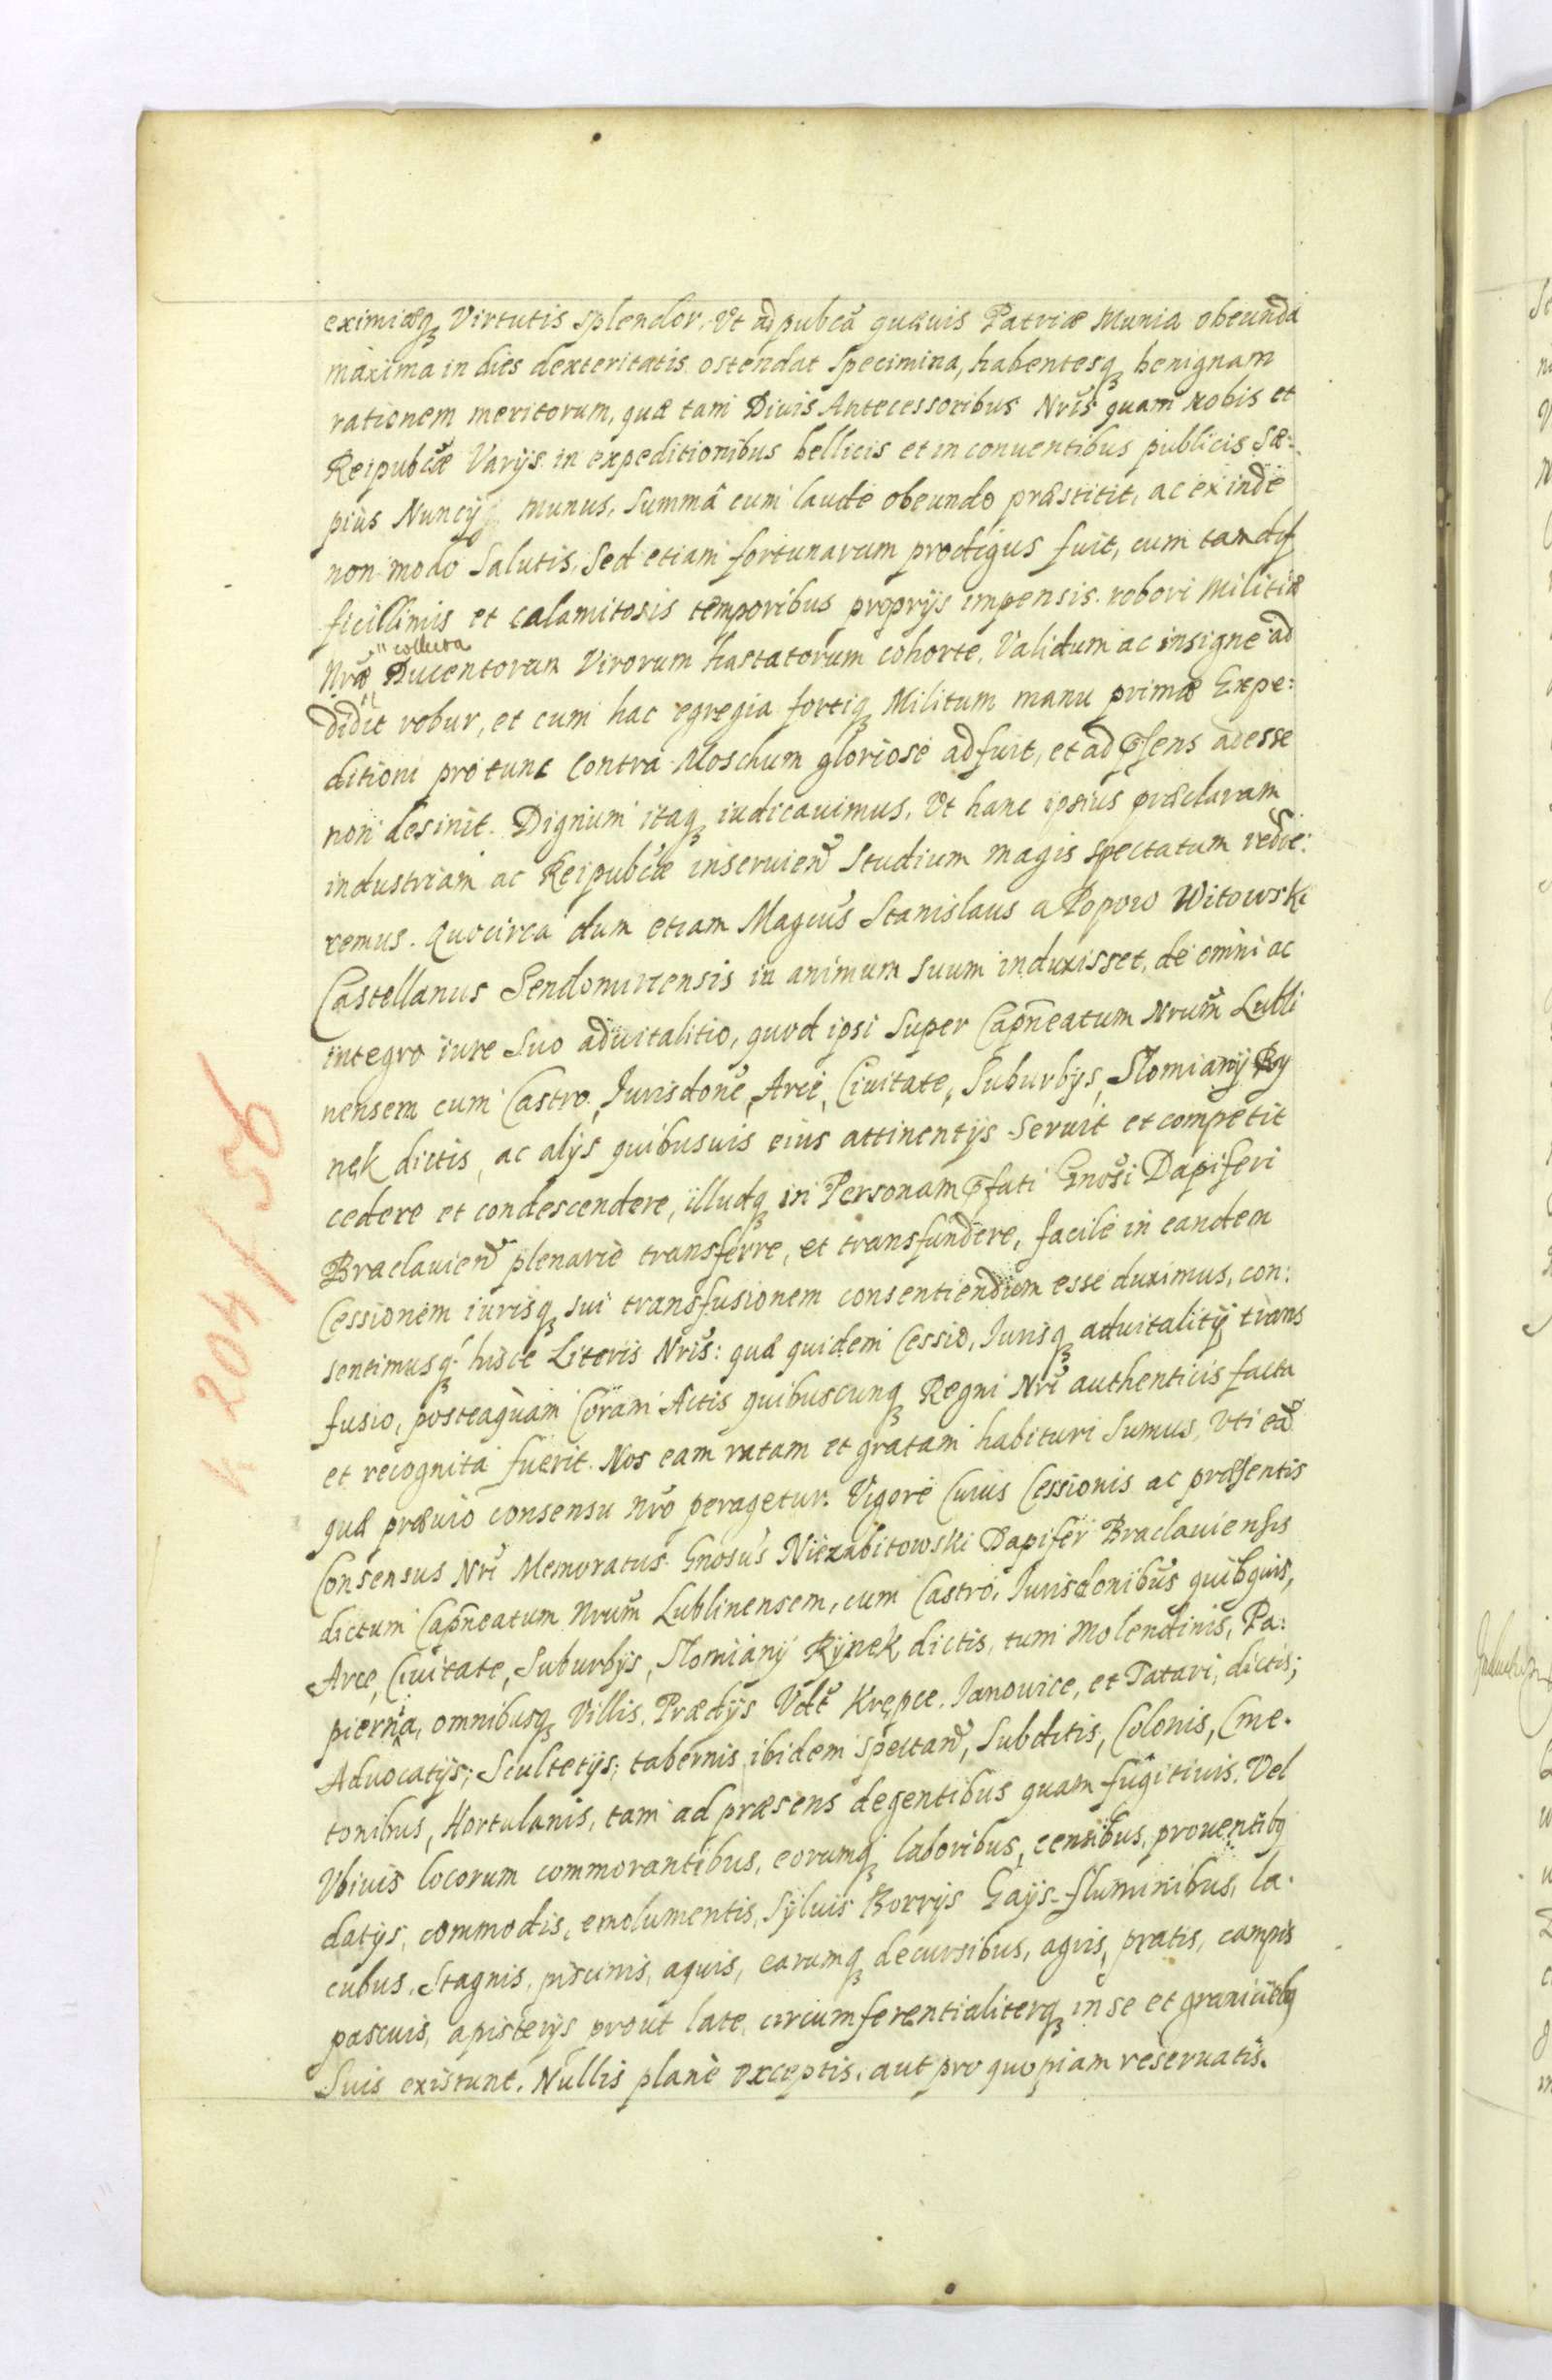 eximiæq3 Virtutis splendor. Vt ad pubca quæuis Patriæ Munia obeunda
maxima in dies dexteritatis ostendat specimina, habentesq3 benignam
rationem meritorum, quæ tam Diuis Antecessoribus Nris quam nobis et
Reipubcæ Varijs in expeditionibus bellicis et in conuentibus publicis sæ:
pius Nuncij munus, summâ cum laude obeundo præstitit, ac exinde
non modo salutis, sed etiam fortunarum prodigus fuit, cum tam dif
ficillimis et calamitosis temporibus proprijs impensis robori Militiæ
collecta
Nræ Ducentorum Virorum hastatorum cohorte, Validum ac insigne ad
didit robur, et cum hac egregia fortiq3 Militum manu primæ Expe:
ditioni pro tunc contra Moschum gloriose adfuit, et ad psens adesse
non desinit. Dignum itaq3 iudicauimus, Vt hanc ipsius præclaram
industriam ac Reipubcæ inseruien studium magis spectatum redde:
remus. Quocirca dum etiam Magcus Stanislaus a Popow Witowski
Castellanus Sendomiriensis in animum suum induxisset, de omni ac
integro iure suo aduitalitio, quod ipsi super Capneatum Nrum Lubli
nensem cum Castro, Jurisdone, Arce, Ciuitate, Suburbijs, Słomiany Ry
nek dictis, ac alijs quibusuis eius attinentijs seruit et competit
cedere et condescendere, illudq3 in Personam pfati Gnosi Dapiferi
Braclauien plenariè transferre, et transfundere, facilè in eandem
Cessionem iurisq3 sui transfusionem consentiendum esse duximus, con:
sentimusq3 hisce Literis Nris: quæ quidem Cessio, Jurisq3 aduitalitij trans
fusio, posteaquàm Coram Actis quibuscunq3 Regni Nri authenticis facta
et recognita fuerit. Nos eam ratam et gratam habituri sumus, Vti ea
quæ præuio consensu nro peragetur. Vigore Cuius Cessionis ac præsentis
Consensus Nri Memoratus Gnosus Niezabitowski Dapifer Braclauiensis
dictum Capneatum Nrum Lublinensem, cum Castro, Jurisdonibus quibquis,
Arce, Ciuitate, Suburbijs, Słomiany Rynek dictis, tum Molendinis, Pa:
pierna, omnibusq3 Villis, Prædijs Vdt Krępce, Janowice, et Tatari, dictis;
Aduocatijs; Scultetijs; tabernis ibidem spectan, Subditis, Colonis, Cme.
tonibus, Hortulanis, tam ad præsens degentibus quam fugitiuis, Vel
Vbiuis locorum commorantibus, eorumq3 laboribus, censibus, prouentibq
datijs, commodis, emolumentis, Syluis Borrijs Gajjs fluminibus, la.
cubus, Stagnis, piscinis, aquis, earumq3 decursibus, agris, pratis, campis
pascuis, apisterijs prout late, circumferentialiterq3 in se et graniciebq
Suis existunt. Nullis planè exceptis, aut pro quopiam reseruatis.
k 204 / 56